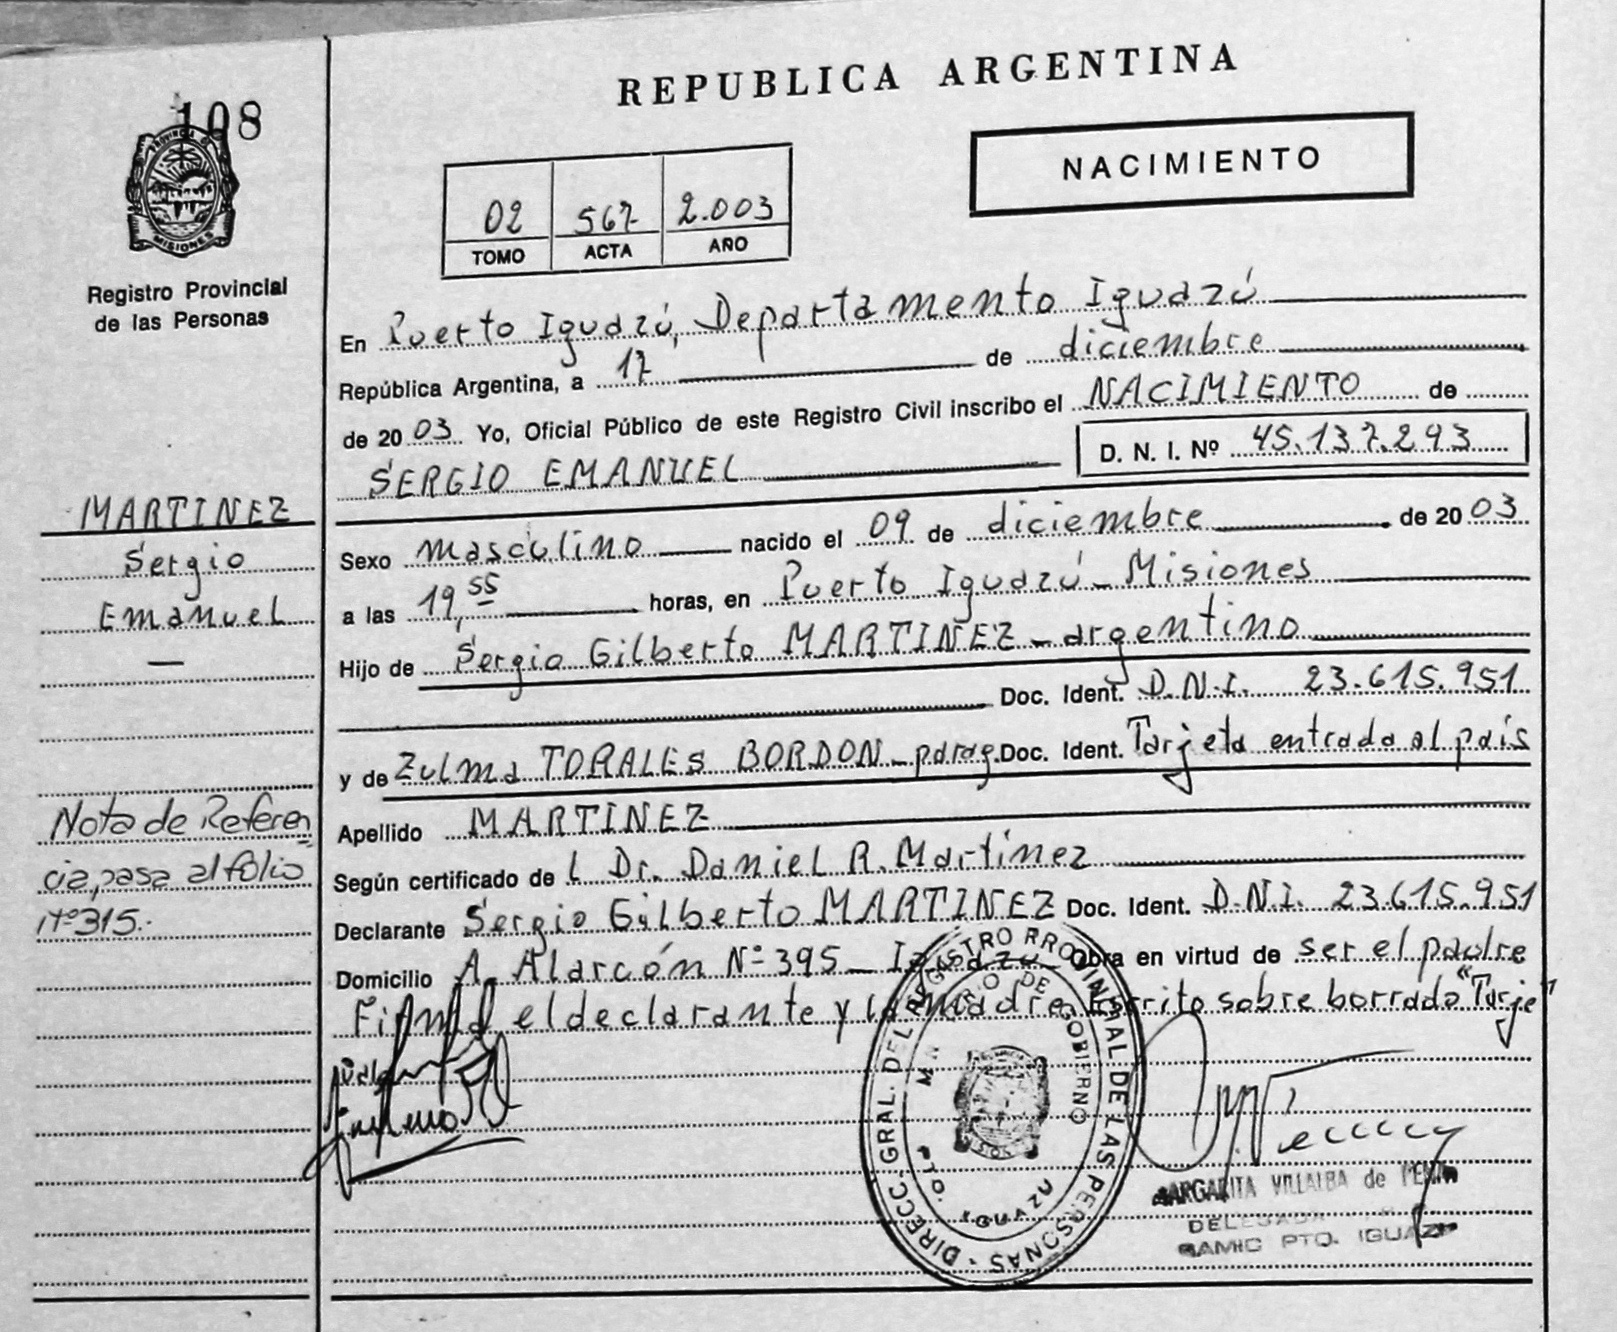 REPUBLICA ARGENTINA
108
PROVINCIA D
MISIONES
Registro Provincial
de las Personas
NACIMIENTO
02 567 2.003
TOMO ACTA AÑO
En Puerto Iguazú, Departamento Iguazú
República Argentina, a 17 de diciembre
de 2003 Yo, Oficial Público de este Registro Civil inscribo el NACIMIENTO de
SERGIO EMANUEL
D. N. I. Nº 45.137.293
Sexo masculino nacido el 09 de diciembre de 2003
a las 19,55 horas, en Puerto Iguazú - Misiones
Hijo de Sergio Gilberto MARTINEZ - argentino
Doc. Ident. D.N.I. 23.615.951
y de Zulma TORALES BORDON - parag. Doc. Ident. Tarjeta entrada al país
Apellido MARTINEZ
Según certificado de l Dr. Daniel R. Martínez
Declarante Sergio Gilberto MARTINEZ Doc. Ident. D.N.I. 23.615.951
Domicilio A. Alarcón Nº 395 - Iguazú Obra en virtud de ser el padre
Firma el declarante y la madre Escrito sobre borrado "Tarje"
MARTINEZ
Sergio
Emanuel
—
Nota de Referen
cia, pasa al folio
Nº 315.
DIRECC. GRAL. DEL REGISTRO PROVINCIAL DE LAS PERSONAS
DE GOBIERNO
PTO. IGUAZU
MARGARITA VILLALBA de
DELEGADA
SAMIC PTO. IGUAZU